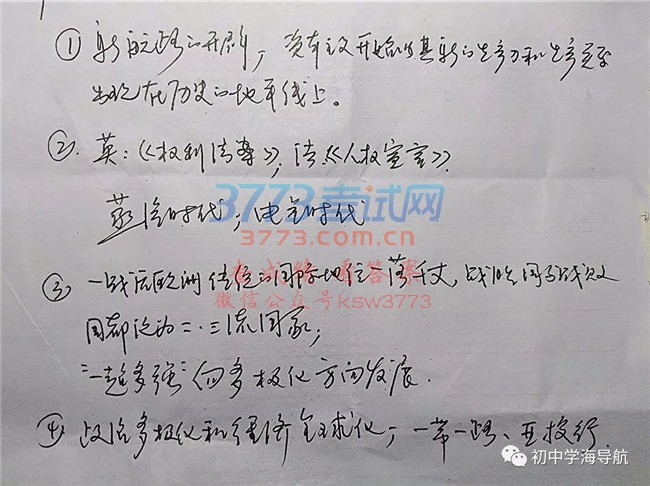 ① 新航路的开辟，资本主义开始以其新的生产力和生产关系
出现在历史的地平线上。
②. 英：《权利法案》，法《人权宣言》
3773考试网
蒸汽时代；电气时代
3773.com.cn
③ 一战后欧洲传统的国际地位一落千丈，战胜国与战败
微信公众号ksw3773
国都沦为二.三流国家；
"一超多强" 向多极化方向发展.
④ 政治多极化和经济全球化；一带一路、亚投行.
初中学海导航